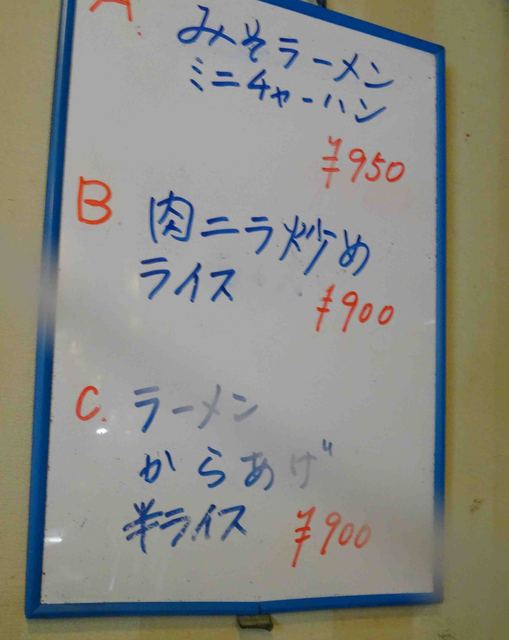 A.
みそラーメン
ミニチャーハン
¥950
B
肉ニラ炒め
ライス
¥900
C.
ラーメン
からあげ
半ライス
¥900